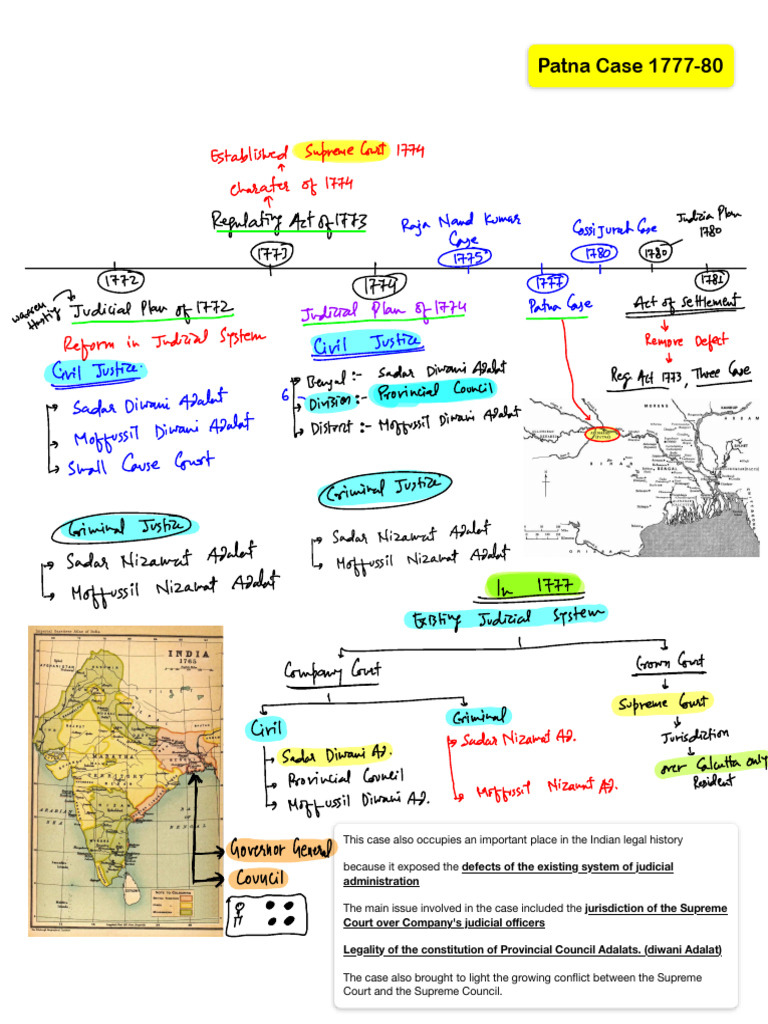 Patna Case 1777-80
Established Supreme Court 1774
Charater of 1774
Regulating Act of 1773
Raja Nand Kumar
Case
Cossijurah Case
Judizia Plan
1780
1772
1773
1774
1775
1777
1780
1780
1781
Warren
Hasting
Judicial Plan of 1772
Reform in Judicial System
Civil Justice
Sadar Diwani Adalat
Moffussil Diwani Adalat
Small Cause Court
Criminal Justice
Sadar Nizamat Adalat
Moffussil Nizamat Adalat
Judicial Plan of 1774
Civil Justice
Bengal :- Sadar Diwani Adalat
6 Division :- Provincial Council
District :- Moffussil Diwani Adalat
Criminal Justice
Sadar Nizamat Adalat
Moffussil Nizamat Adalat
Patna Case
Act of Settlement
Remove Defect
Reg. Act 1773, Three Case
BIHAR
BENGAL
ORISSA
In 1777
Existing Judicial System
Company Court
Crown Court
Civil
Sadar Diwani Ad.
Provincial Council
Moffussil Diwani Ad.
Criminal
Sadar Nizamat Ad.
Moffussil Nizamat Ad.
Supreme Court
Jurisdiction
over Calcutta only
Resident
INDIA
1765
Governor General
Council
This case also occupies an important place in the Indian legal history
because it exposed the defects of the existing system of judicial
administration
The main issue involved in the case included the jurisdiction of the Supreme
Court over Company's judicial officers
Legality of the constitution of Provincial Council Adalats. (diwani Adalat)
The case also brought to light the growing conflict between the Supreme
Court and the Supreme Council.